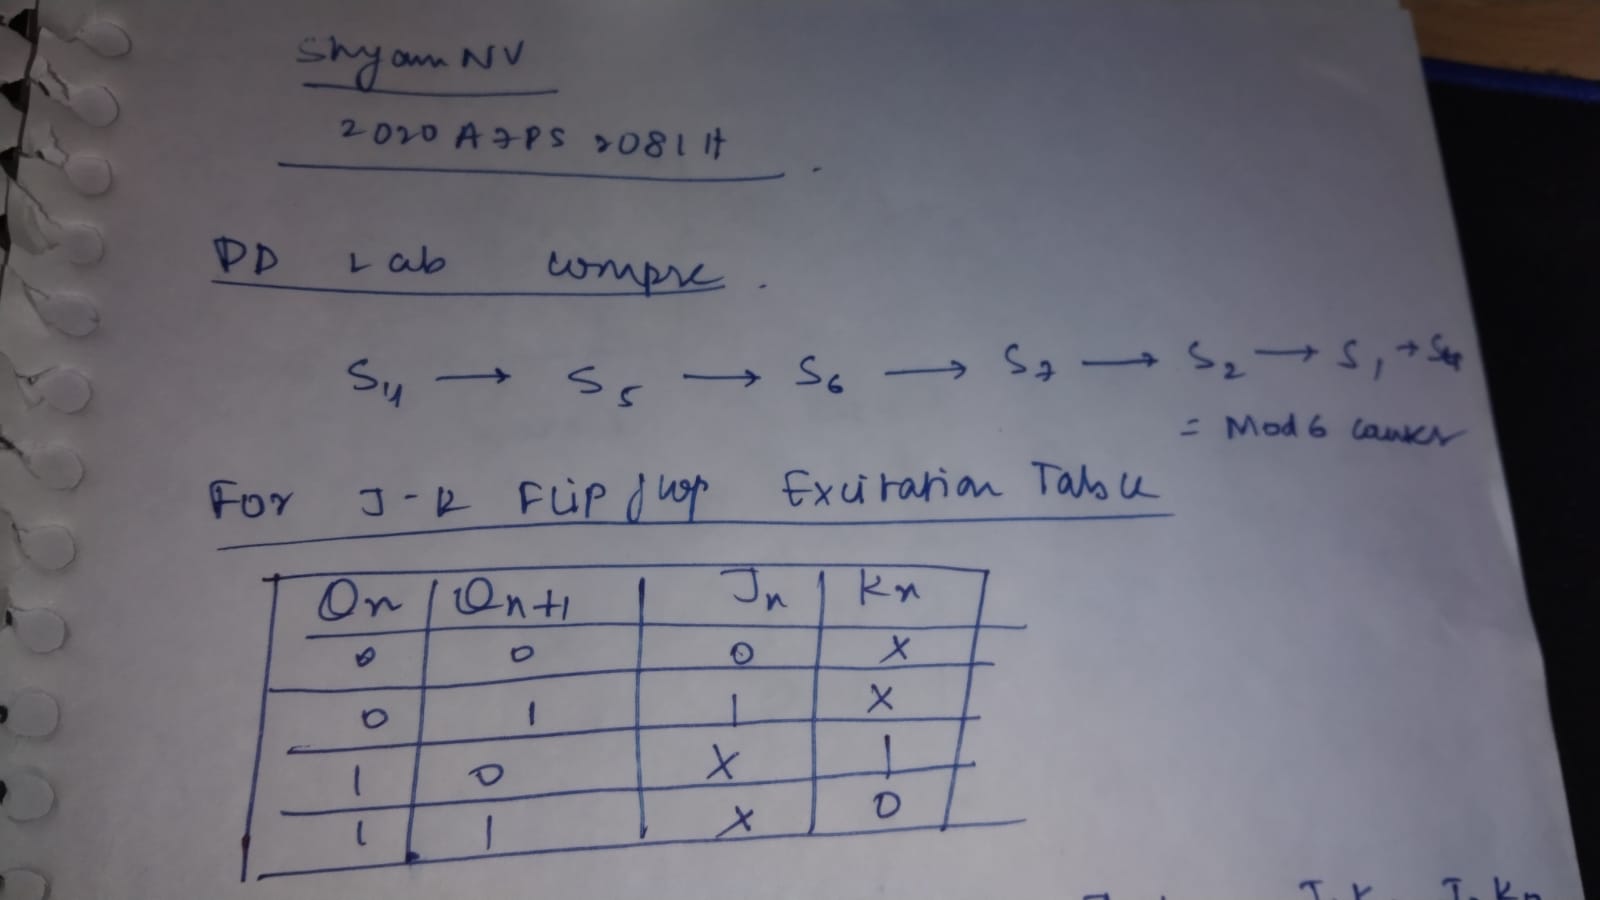 Shyam NV
2020A7PS2081H
DD Lab compre.
S4 → S5 → S6 → S7 → S2 → S1 → S4
= Mod 6 counter
For J-K Flip flop Excitation Table
Qn Qn+1 Jn Kn
0 0 0 X
0 1 1 X
1 0 X 1
1 1 X 0